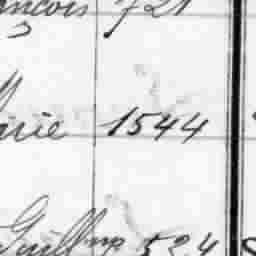 ançois 721
arie 1544
Guill^me 524